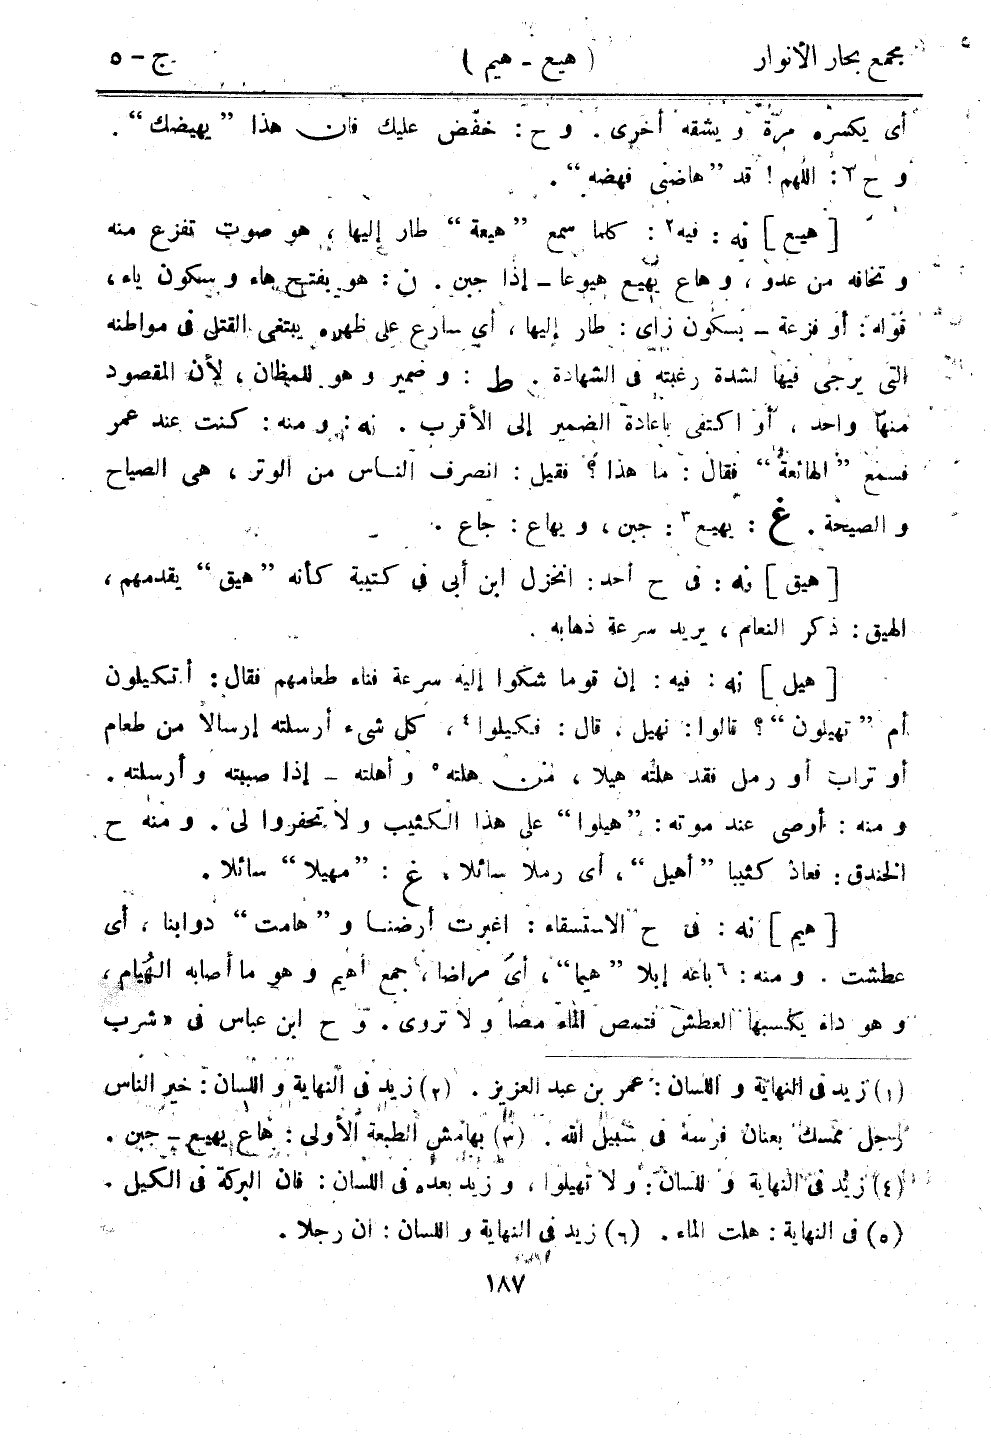 مجمع بحار الأنوار ( هيع - هيم ) ج - ٥
أى يكسره مرّة و يشقه أخرى . و ح : خفّض عليك فان هذا ”يهيضك“ .
و ح : اللهم ! قد ”هاضنى فهضه“ .
[ هيع ] نه : فيه٢ : كلما سمع ”هيعة“ طار إليها ، هو صوت تفزع منه
و تخافه من عدو ، و هاع يهيع هيوعا - إذا جبن . ن : هو بفتح هاء و سكون ياء ،
قوله : أو فزعة - بسكون زاى : طار إليها ، أي سارع على ظهره يبتغى القتل فى مواطنه
التى يرجى فيها لشدة رغبته فى الشهادة . ط : و ضمير و هو للمظان ، لأن المقصود
منها واحد ، أو اكتفى باعادة الضمير إلى الأقرب . نه : و منه : كنت عند عمر
فسمع ”الهائعة“ فقال : ما هذا ؟ فقيل : انصرف الناس من الوتر ، هى الصياح
و الصيحة . غ : يهيع٣ : جبن ، و يهاع : جاع .
[ هيق ] نه : فى ح أحد : انخزل ابن أبى فى كتيبة كأنه ”هيق“ يقدمهم ،
الهيق : ذكر النعام ، يريد سرعة ذهابه .
[ هيل ] نه : فيه : إن قوما شكوا إليه سرعة فناء طعامهم فقال : أتكيلون
أم ”تهيلون“ ؟ قالوا : نهيل ، قال : فكيلوا٤ ، كل شىء أرسلته إرسالا من طعام
أو تراب أو رمل فقد هلته هيلا ، من هلته٥ و أهلته - إذا صببته و أرسلته .
و منه : أوصى عند موته : ”هيلوا“ على هذا الكثيب و لا تحفروا لى . و منه ح
الخندق : فعاذ كثيبا ”أهيل“ ، أى رملا سائلا . غ : ”مهيلا“ سائلا .
[ هيم ] نه : فى ح الاستسقاء : اغبرت أرضنا و ”هامت“ دوابنا ، أى
عطشت . و منه : ٦ باعه إبلا ”هيما“ ، أى مراضا ، جمع أهيم و هو ما أصابه الهُيام ،
و هو داء يكسبها العطش فتمص الماء مصا و لا تروى . و ح ابن عباس فى « شرب
(١) زيد فى النهاية و اللسان : عمر بن عبد العزيز . (٢) زيد فى النهاية و اللسان : خير الناس
رجل ممسك بعنان فرسه فى سبيل الله . (٣) بهامش الطبعة الأولى : هاع يهيع - جبن .
(٤) زيد فى النهاية و اللسان : و لا تهيلوا ، و زيد بعده فى اللسان : فان البركة فى الكيل .
(٥) فى النهاية : هلت الماء . (٦) زيد فى النهاية و اللسان : ان رجلا .
١٨٧